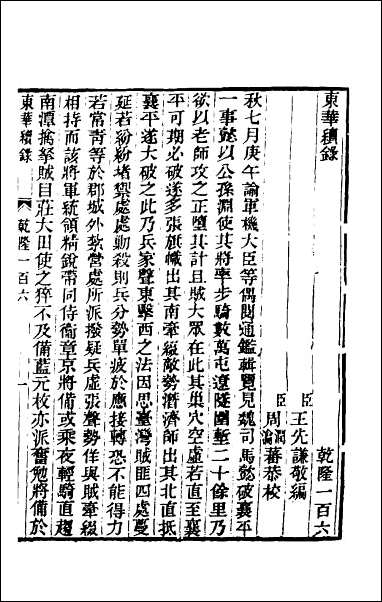 東華續錄
乾隆一百六
臣王先謙敬編
臣周潤蕃周瀹蕃恭校
秋七月庚午諭軍機大臣等偶閱通鑑輯覽見魏司馬懿破襄平
一事懿以公孫淵使其將率步騎數萬屯遼隧圍塹二十餘里乃
欲以老師攻之正墮其計且賊大眾在此其巢穴空虛若直至襄
平可期必破遂多張旗幟出其南牽綴敵勢潛濟師出其北直抵
襄平遂大破之此乃兵家聲東擊西之法因思臺灣賊匪四處蔓
延若紛紛堵禦處處動殺則兵分勢單疲於應接轉恐不能得力
若常青等於郡城外紮營處所派撥疑兵虛張聲勢佯與賊牽綴
相持而該將軍統領精銳帶同侍衛章京將備或乘夜輕騎直趨
南潭擒拏賊目莊大田使之猝不及備藍元枚亦派奮勉將備於
東華續錄
乾隆一百六
一